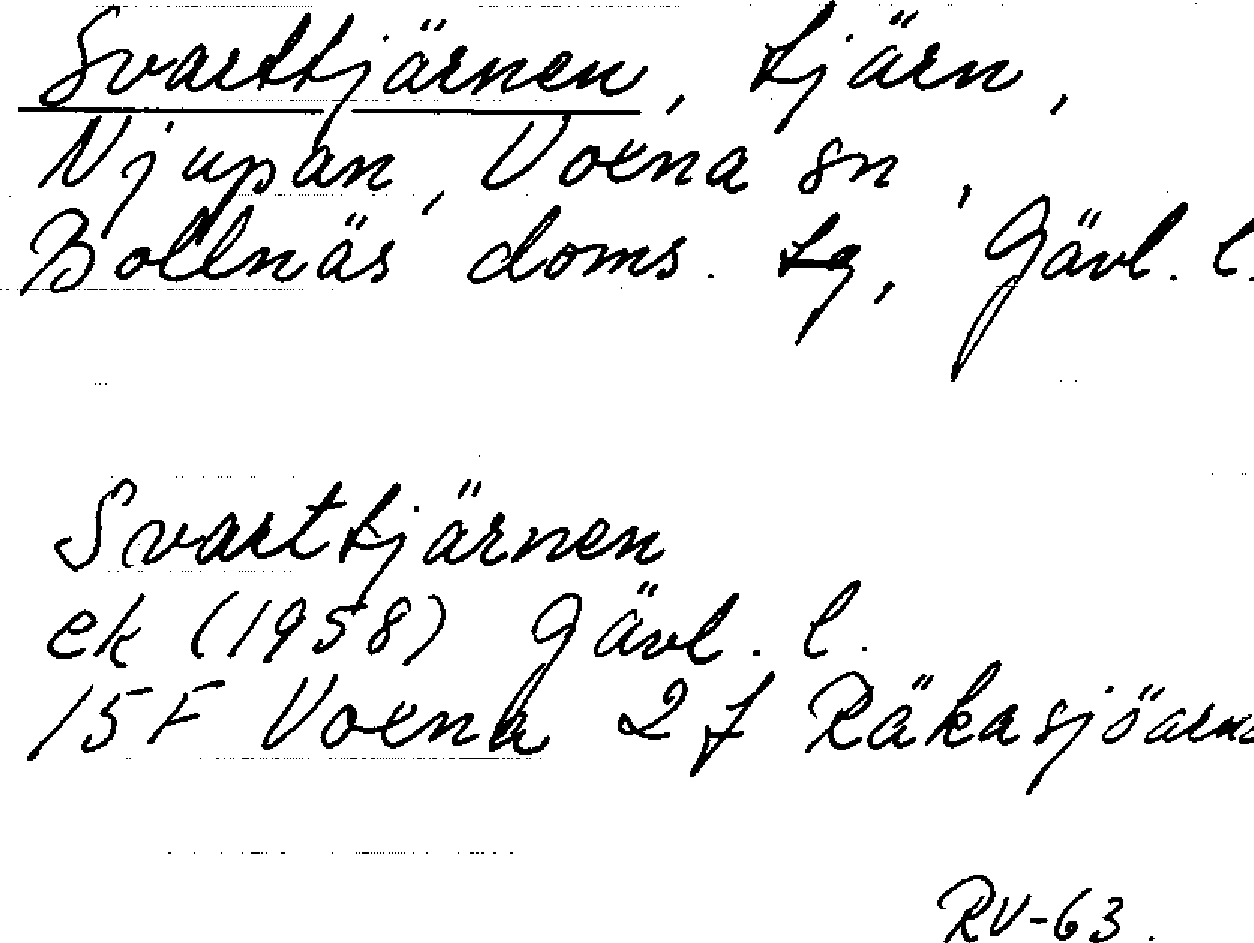 Svarttjärnen, tjärn,
Njupan, Voxna sn,
Bollnäs doms. tg, Gävl. l.
Svarttjärnen
ek (1958) Gävl. l.
15F Voxna 2f Räkasjöarna
RV-63.